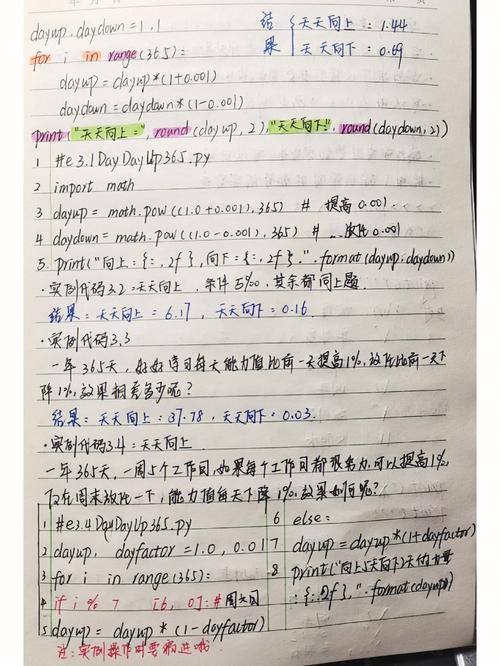 dayup, daydown = 1, 1
for i in range(365):
dayup = dayup*(1+0.001)
daydown = daydown*(1-0.001)
结果 { 天天向上: 1.44
天天向下: 0.69
print("天天向上=", round(dayup, 2), "天天向下=", round(daydown, 2))
1 #e3.1DayDayUp365.py
2 import math
3 dayup = math.pow((1.0+0.001), 365) # 提高0.001
4 daydown = math.pow((1.0-0.001), 365) # 放任0.001
5. Print("向上:{:.2f},向下:{:.2f}.".format(dayup, daydown))
·实例代码3.2:天天向上 条件5‰,其余都同上题.
结果:天天向上=6.17,天天向下:0.16.
·实例代码3.3
一年365天,好好学习每天能力值比前一天提高1%,放任比前一天下
降1%,效果相差多少呢?
结果:天天向上:37.78,天天向下:0.03.
·实例代码3.4:天天向上
一年365天,一周5个工作日,如果每个工作日都很努力,可以提高1%,
仅在周末放任一下,能力值每天下降1%,效果如何呢?
1 #e3.4DayDayUp365.py
2 dayup, dayfactor = 1.0, 0.01
3 for i in range(365):
4 if i % 7 [6, 0]: #周六日
5 dayup = dayup * (1-dayfactor)
6 else:
7 dayup = dayup*(1+dayfactor)
8 print("向上5天向下2天的力量
:{:.2f}.".format(dayup))
注:实例操作时要缩进哦